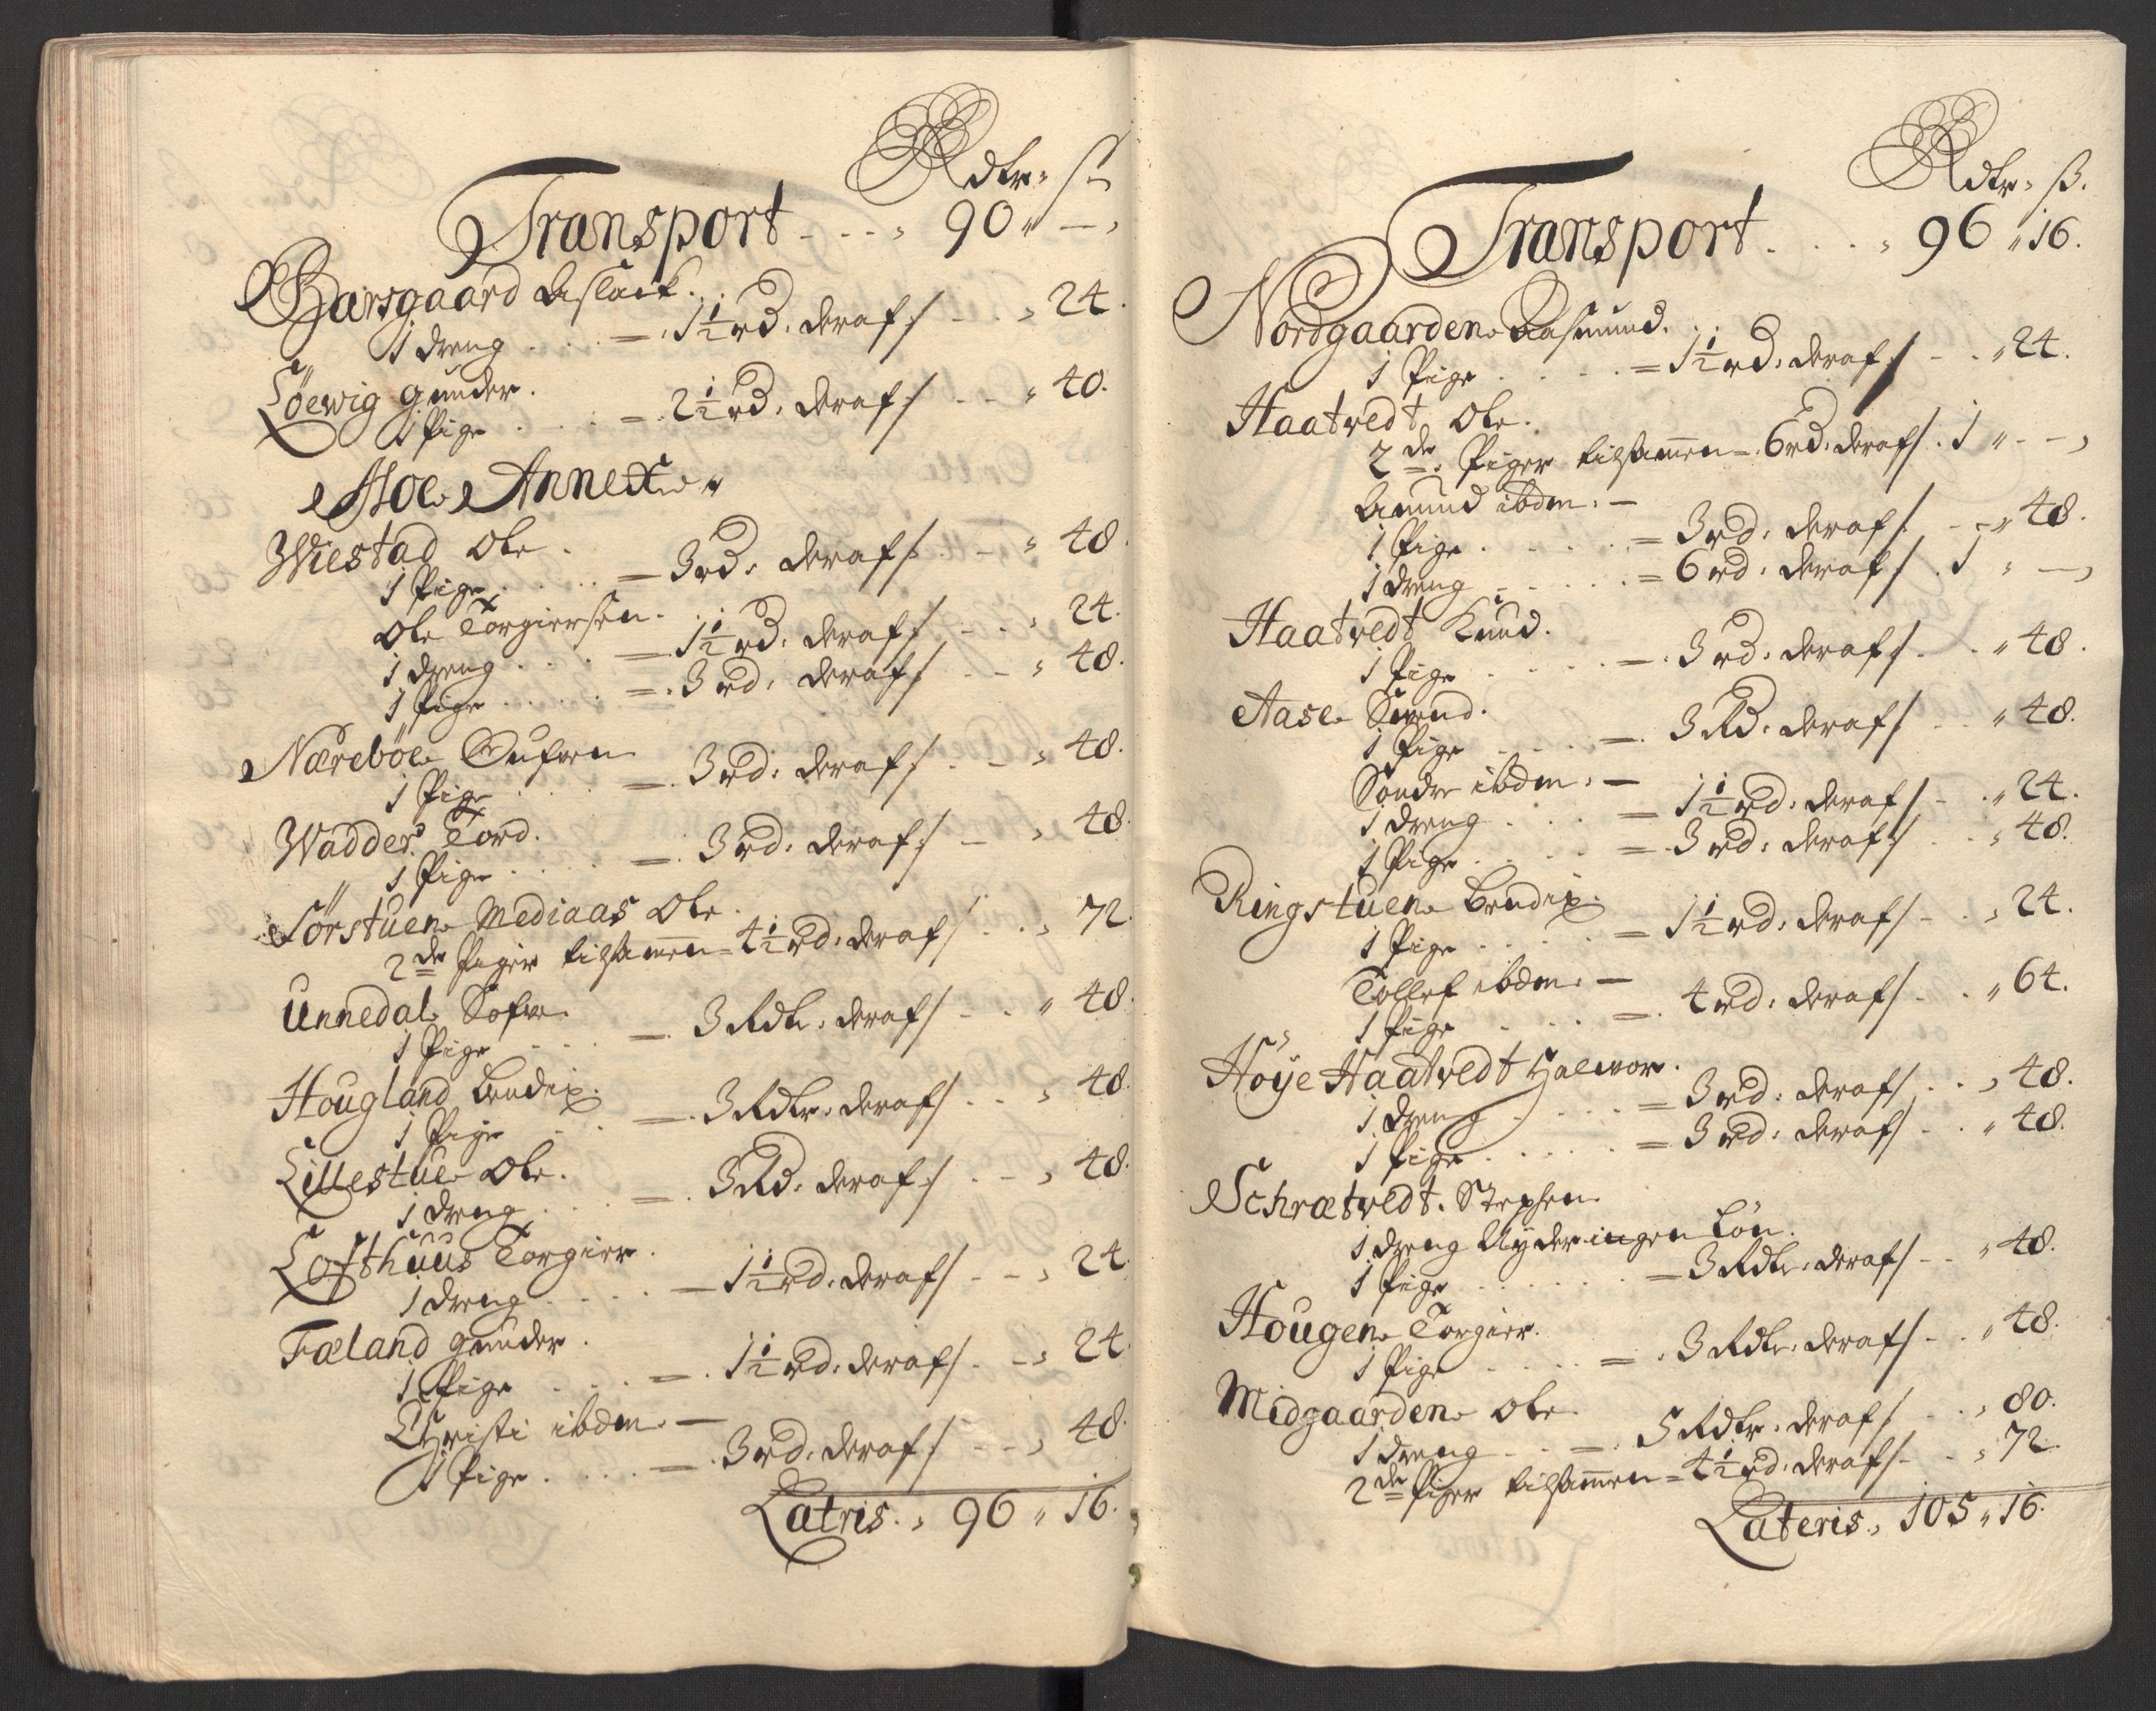 Rdlr: ß
Transport - - - 90 „ — ,
Garsgaard Aslack.
1 dreng . . . = 1½ rd: deraf / - - „ 24.
Löewig gunder.
1 Pige . . . = 2½ rd: deraf / - - „ 40.
Moe Annex
Wiestad Ole.
1 Pige . . . = 3 rd: deraf / - - „ 48.
Ole Torgiersen.
1 dreng . . . = 1½ rd: deraf / - - „ 24.
1 Pige . . . = 3 rd: deraf / - - „ 48.
Nærebøe
1 Pige . . . = 3 rd: deraf / - - „ 48.
Wadder Tord.
1 Pige . . . = 3 rd: deraf / - - „ 48.
Sörstuen Mediaas Ole.
2de Piger tilsammen = 4½ rd: deraf / . . „ 72.
Unnedal
1 Pige . . . = 3 Rdlr: deraf / - - „ 48.
Hougland Bendix.
1 Pige . . . = 3 Rdlr: deraf / - - „ 48.
Lillestue Ole.
1 dreng . . . = 3 Rd: deraf / - - „ 48.
Lofthuus Torgier.
1 dreng . . . = 1½ rd: deraf / - - „ 24.
Fæland gunder.
1 Pige . . . = 1½ rd: deraf / - - „ 24.
Christi ibdm: —
1 Pige . . . = 3 rd: deraf / - - „ 48.
Latris. „ 96 „ 16.
Rdlr: ß.
Transport . . . „ 96 „ 16.
Nordgaarden Aasmund.
1 Pige . . . = 1½ rd: deraf / - - „ 24.
Haatvedt Ole.
2de Piger tilsammen = 6 rd: deraf / . 1 „ - - ,
Amund ibdm: —
1 Pige . . . = 3 rd: deraf / - - „ 48.
1 dreng . . . = 6 rd: deraf / . 1 „ — ,
Haatvedt Knud.
1 Pige . . . = 3 rd: deraf / . . „ 48.
Aase Svend.
1 Pige . . . = 3 Rd: deraf / . . „ 48.
Sondre ibdm: —
1 dreng . . . = 1½ rd: deraf / - - „ 24.
1 Pige . . . = 3 rd: deraf / . . „ 48.
Ringstuen Bendix.
1 Pige . . . = 1½ rd: deraf / - - „ 24.
Tollef ibdm: —
1 Pige . . . = 4 rd: deraf / - - „ 64.
Höye Haatvedt Halvor.
1 dreng . . . = 3 rd: deraf / . . „ 48.
1 Pige . . . = 3 rd: deraf / . . „ 48.
Schrætvedt. Stephen.
1 dreng Nyder ingen Løn.
1 Pige . . . = 3 Rdlr: deraf / - - „ 48.
Hougen Torgier.
1 Pige . . . = 3 Rdlr: deraf / - - „ 48.
Midgaarden Ole.
1 dreng . . . = 5 Rdlr: deraf / . . „ 80.
2de Piger tilsammen = 4½ rd: deraf / - - „ 72.
Lateris „ 105 „ 16.